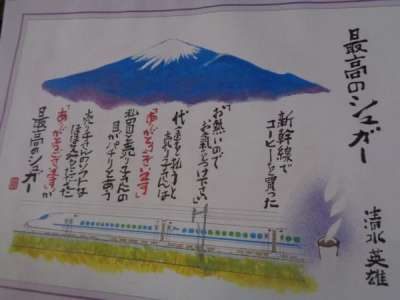 最高のシュガー
清水英雄
新幹線で
コーヒーを買った
「お熱いので
お気をつけ下さい」
代金を払うと
売り子さんは
「ありがとうございます」
私の目と売り子さんの
目がパチリとあう
売り子さんのソフトな
ほほえみとやさしさ
「ありがとうございます」が
最高のシュガー